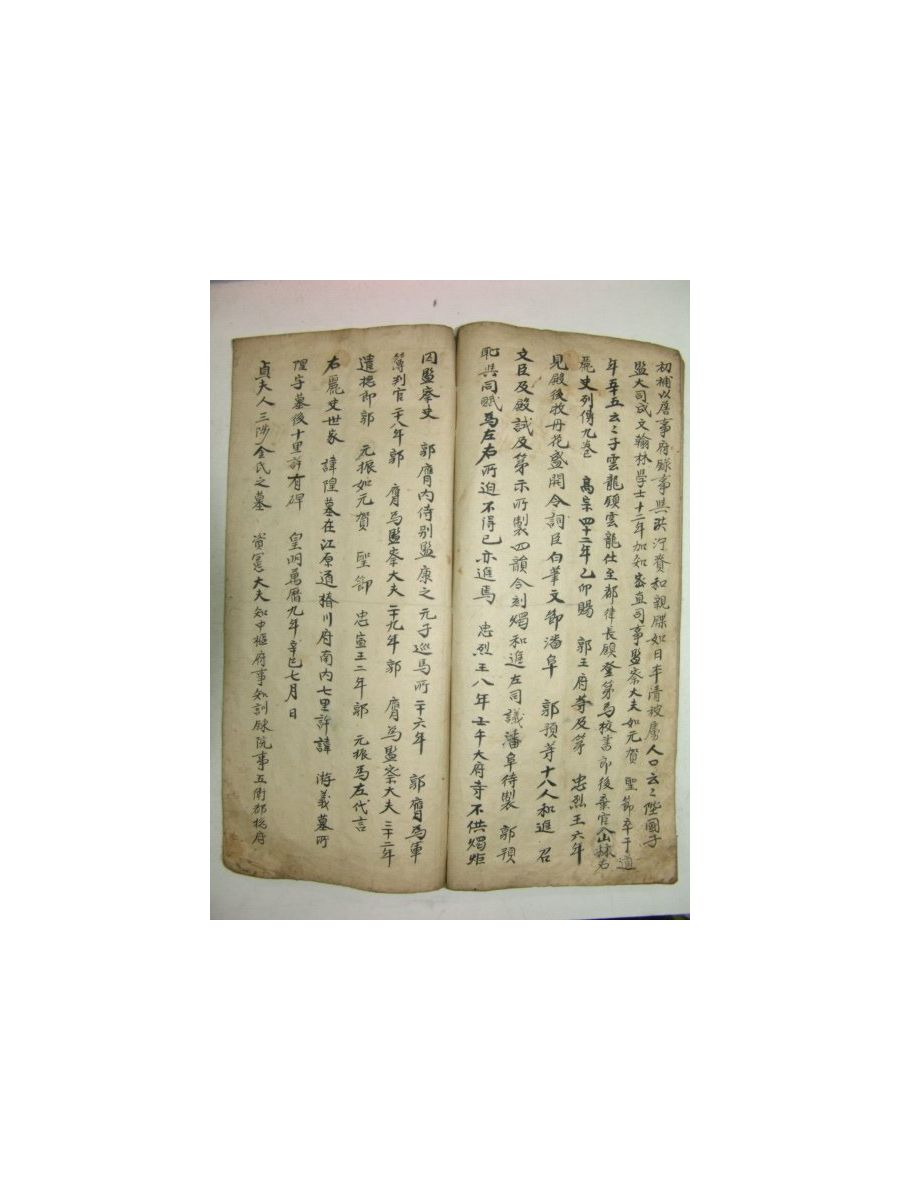 初補以詹事府錄事與洪泞賫和親牒如日本清被虜人口云々陞國子
監大司成文翰林學士十二年加知密直司事監察大夫如元賀 聖節卒于道
年五十五云々子雲龍頎雲龍仕至都律長頎登第爲校書郎後棄官入山林名
麗史列傳九卷 高宗四十二年乙卯賜 郭王府等及第 忠烈王六年
見殿後牧丹花盛開令詞臣白華文節潘阜 郭預等十八人和進 召
文臣及殿試及第示所製四韻令刻燭和進左司議潘阜待製 郭預
恥與同賦爲左右所迫不得已亦進焉 忠烈王八年壬午大府寺不供燭炬
囚監察史 郭膺內侍別監康之 元子巡馬所二十六年 郭膺爲軍
簿判官二十八年郭 膺爲監察大夫二十九年郭 膺爲監察大夫三十二年
遣摠郎郭 元振如元賀 聖節 忠宣王二年郭 元振爲左代言
右麗史世家 諱隍墓在江原道 川府南內七里許諱 游義墓所
隍字墓後十里許有碑 皇明萬曆九年辛巳七月日
貞夫人三陟金氏之墓 資憲大夫知中樞府事知訓鍊院事五衛都摠府